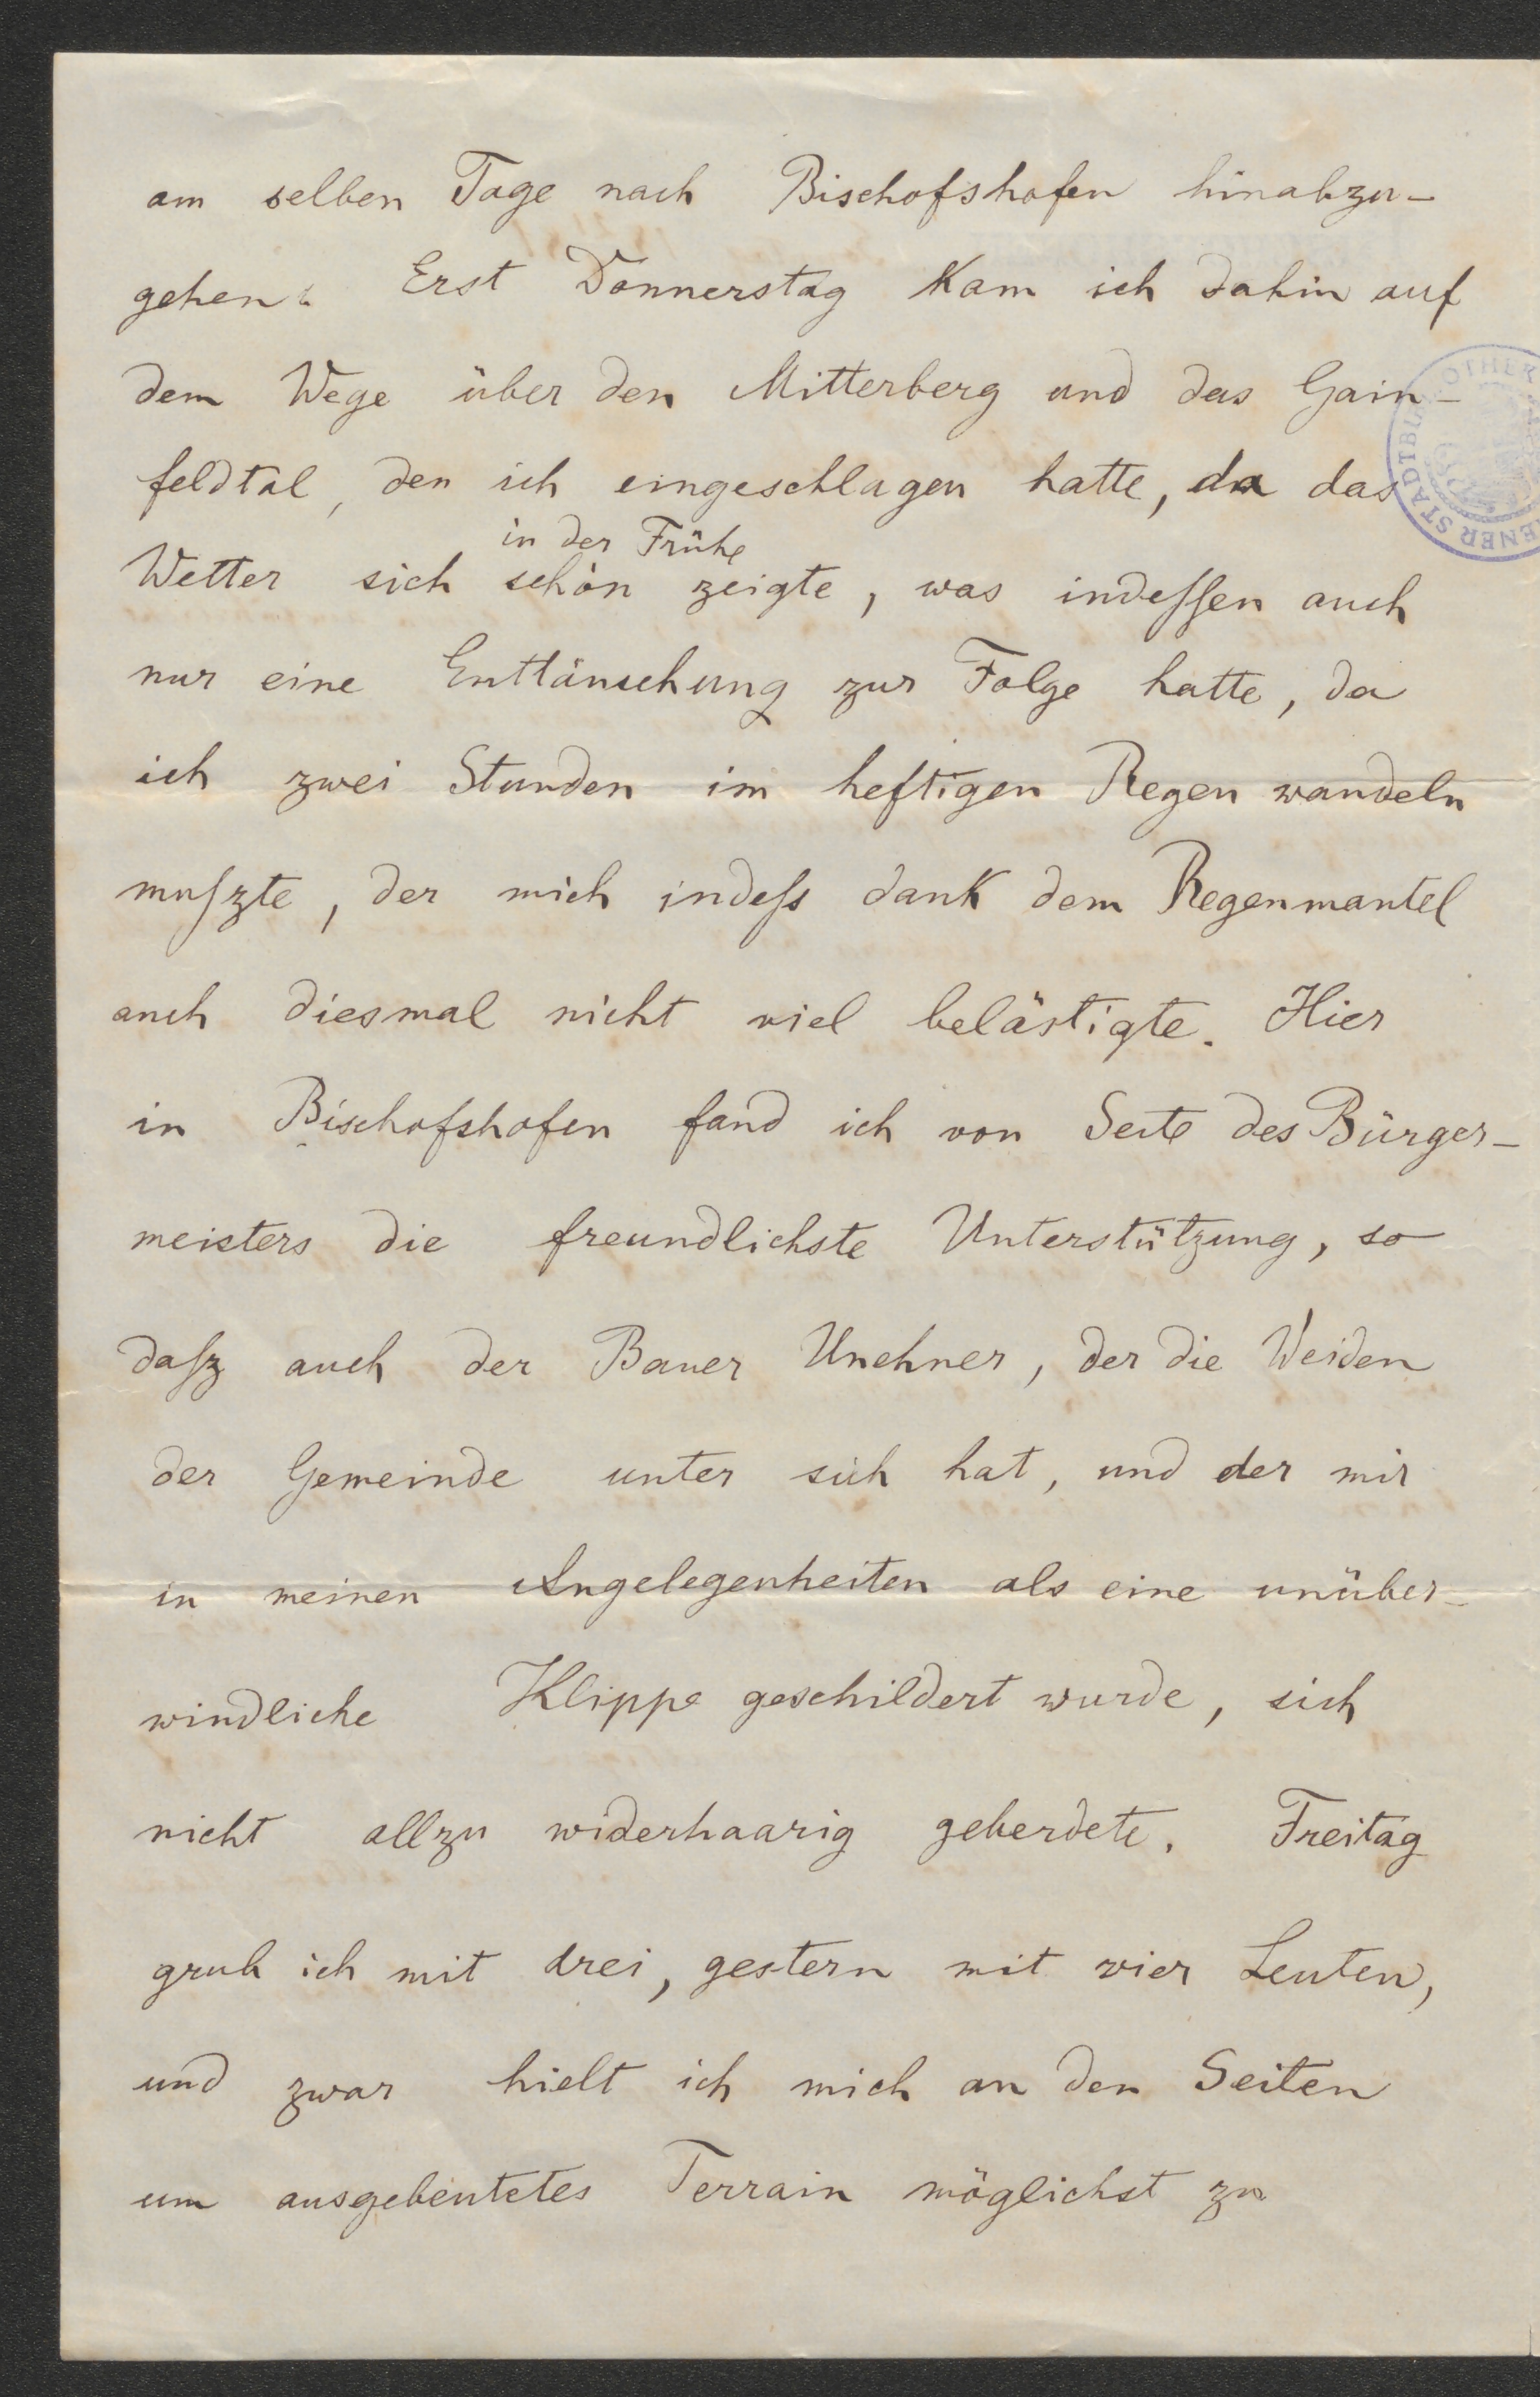 am selben Tage nach Bischofshofen hinabzu-
gehen. Erst Donnerstag kam ich dahin auf
dem Wege über den Mitterberg und das Gain-
feldtal, den ich eingeschlagen hatte, da das
in der Frühe
Wetter sich schön zeigte, was indeſſen auch
nur eine Enttäuschung zur Folge hatte, da
ich zwei Stunden im heftigen Regen wandeln
muſzte, der mich indeſs dank dem Regenmantel
auch diesmal nicht viel belästigte. Hier
in Bischofshofen fand ich von Seite des Bürger-
meisters die freundlichste Unterstützung, so
daſz auch der Bauer, der die Weiden
der Gemeinde unter sich hat, und der mir
in meinen Angelegenheiten als eine unüber-
windliche Klippe geschildert wurde, sich
nicht allzu widerhaarig geberdete. Freitag
grub ich mit drei, gestern mit vier Leuten,
und zwar hielt ich mich an den Seiten
um ausgebeutetes Terrain möglichst zu